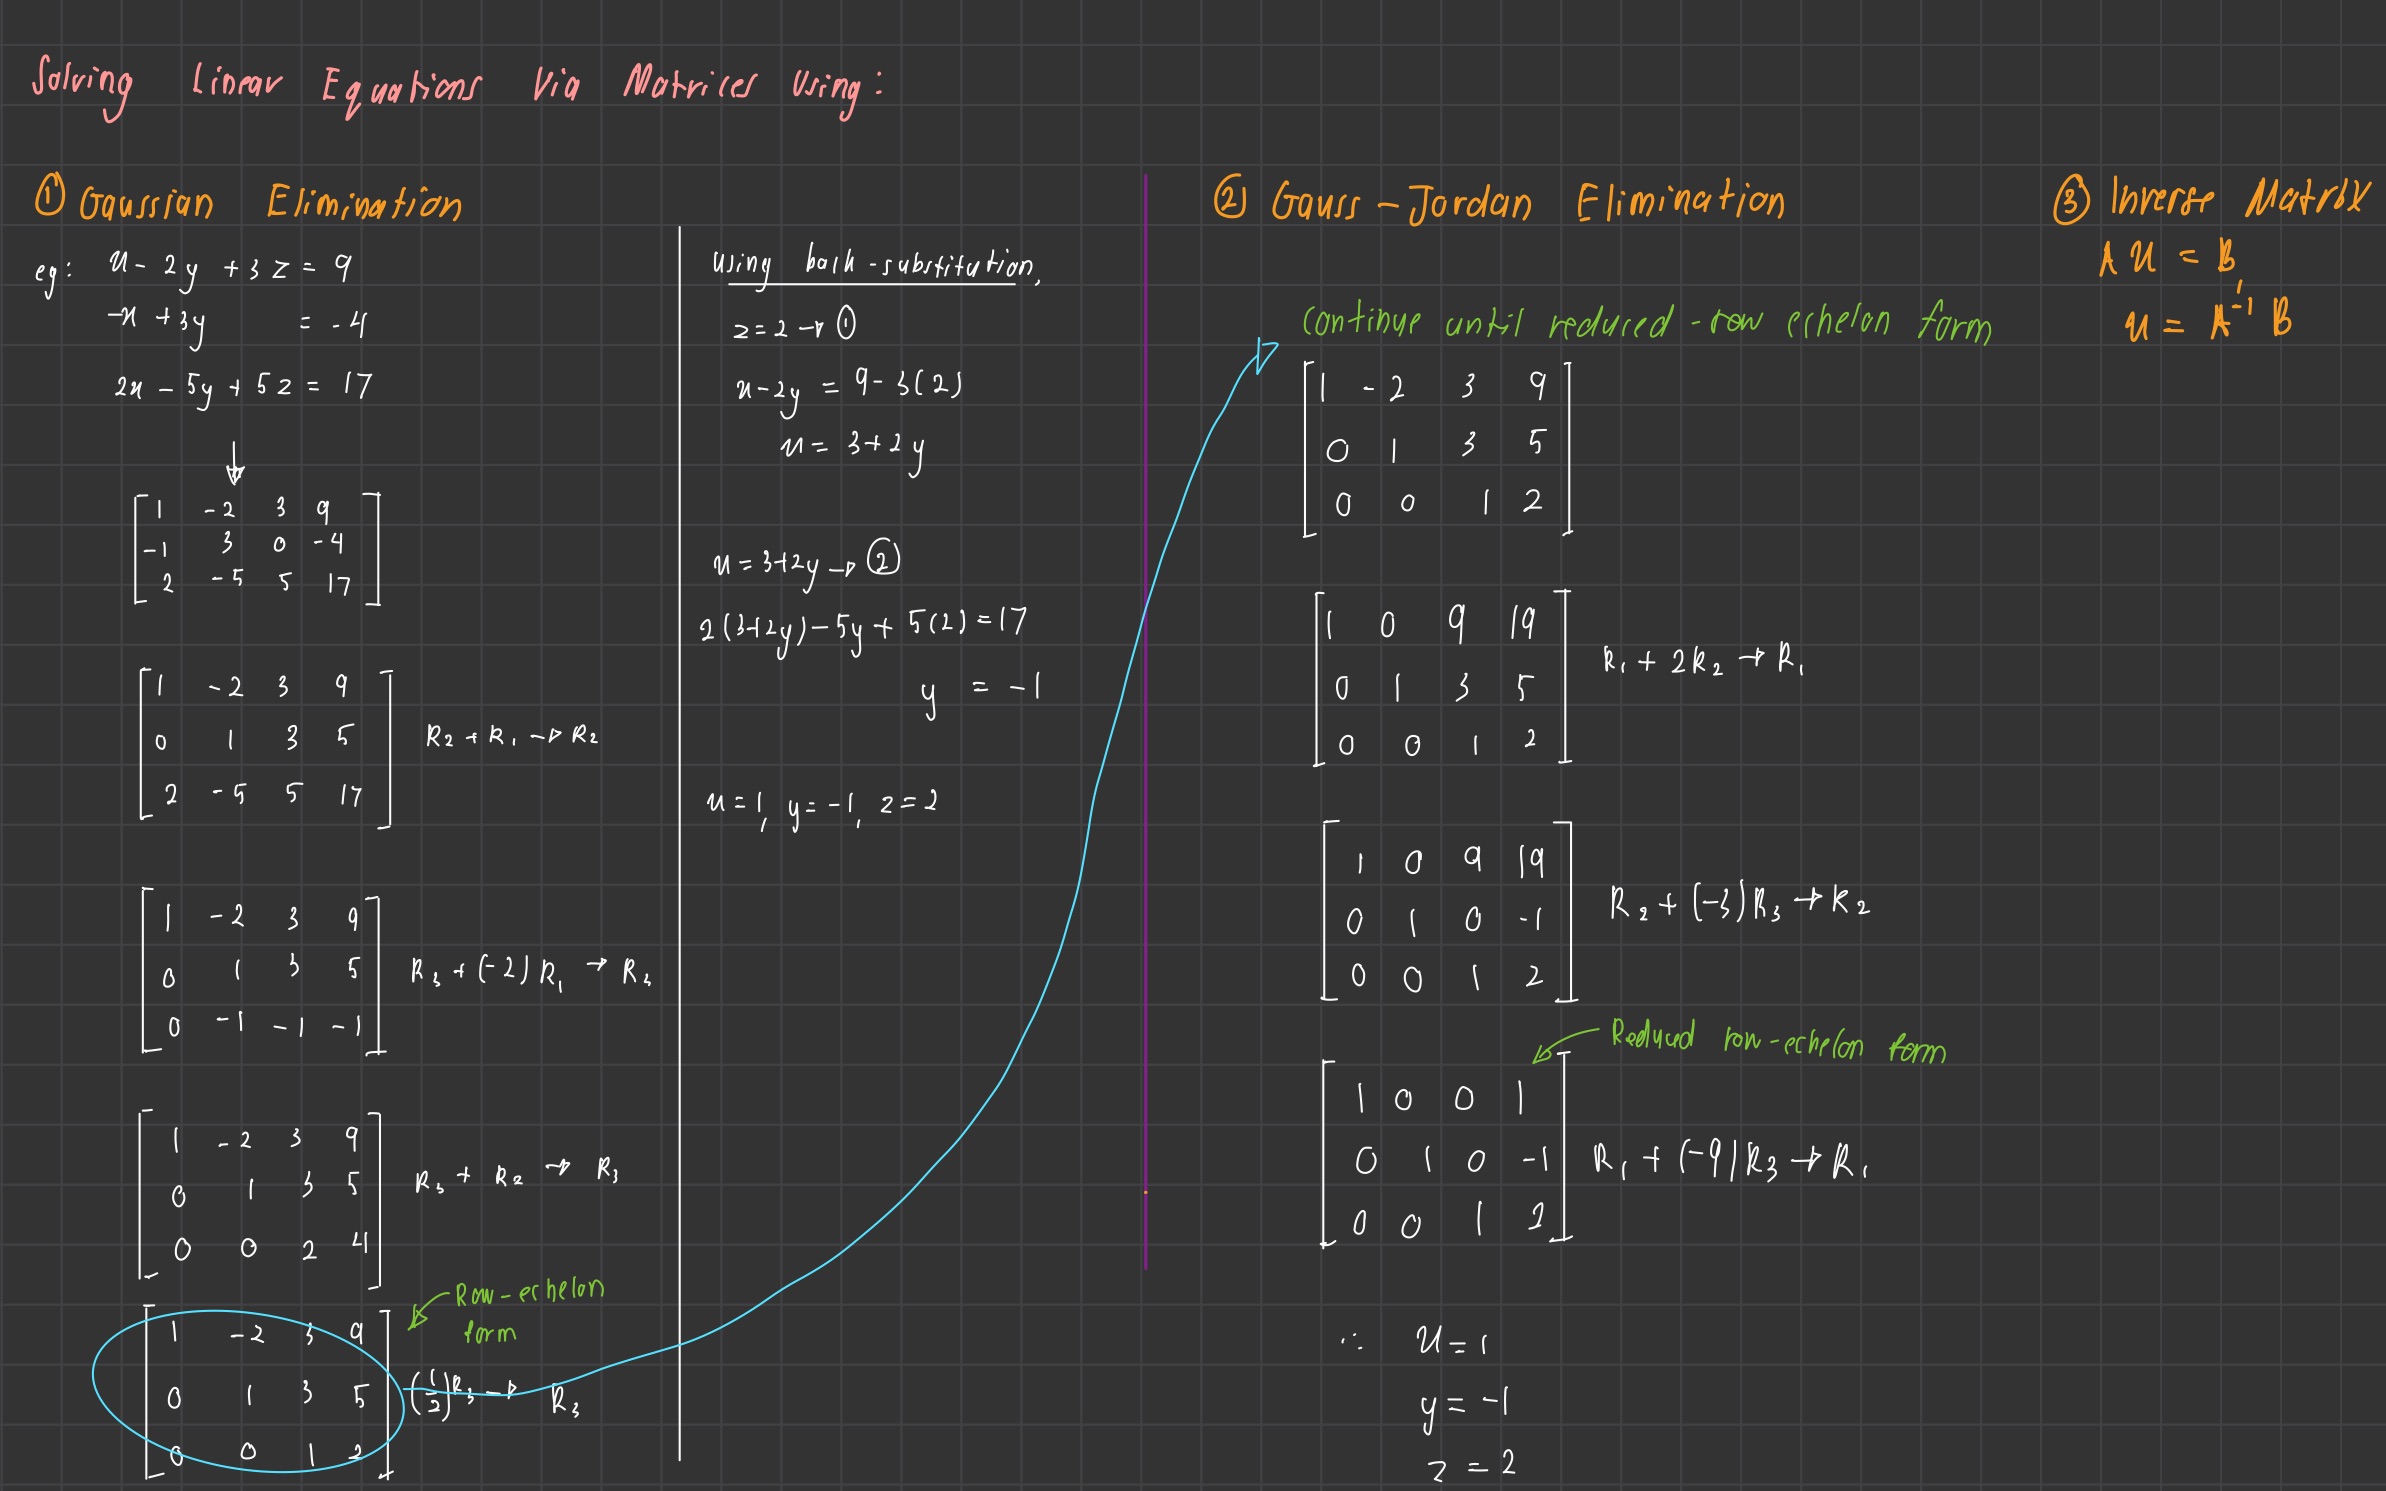 Solving Linear Equations Via Matrices Using:
① Gaussian Elimination
eg: x - 2y + 3z = 9
-x + 3y = -4
2x - 5y + 5z = 17
1 -2 3 9
-1 3 0 -4
2 -5 5 17
1 -2 3 9
0 1 3 5 R2 + R1 → R2
2 -5 5 17
1 -2 3 9
0 1 3 5 R3 + (-2)R1 → R3
0 -1 -1 -1
1 -2 3 9
0 1 3 5 R3 + R2 → R3
0 0 2 4
Row-echelon
form
1 -2 3 9
0 1 3 5 (1/2)R3 → R3
0 0 1 2
using back-substitution,
z = 2 → ①
x - 2y = 9 - 3(2)
x = 3 + 2y
x = 3+2y → ②
2(3+2y) - 5y + 5(2) = 17
y = -1
x = 1, y = -1, z = 2
② Gauss-Jordan Elimination
continue until reduced-row echelon form
1 -2 3 9
0 1 3 5
0 0 1 2
1 0 9 19
R1 + 2R2 → R1
0 1 3 5
0 0 1 2
1 0 9 19
0 1 0 -1 R2 + (-3)R3 → R2
0 0 1 2
Reduced row-echelon form
1 0 0 1
0 1 0 -1 R1 + (-9)R3 → R1
0 0 1 2
∴ x = 1
y = -1
z = 2
③ Inverse Matrix
A x = B
x = A⁻¹ B